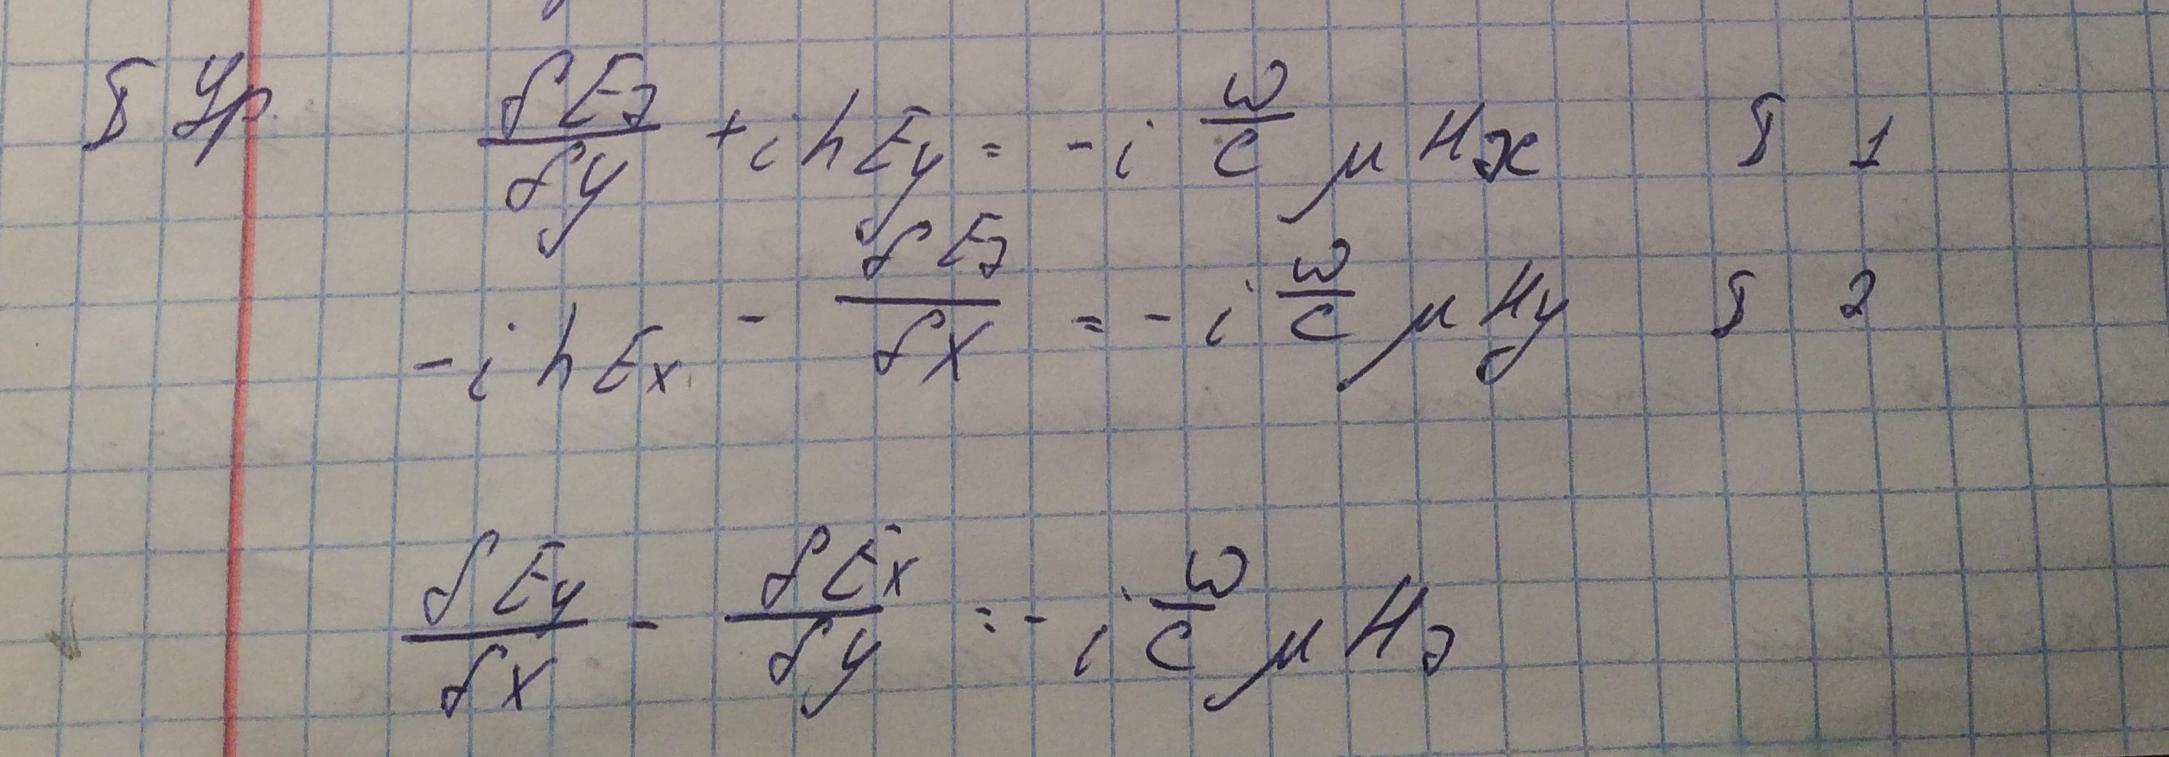 § Ур. δEz/δy + ihEy = -i ω/c μHx § 1
-ihEx - δEz/δx = -i ω/c μHy § 2
δEy/δx - δEx/δy = -i ω/c μHz